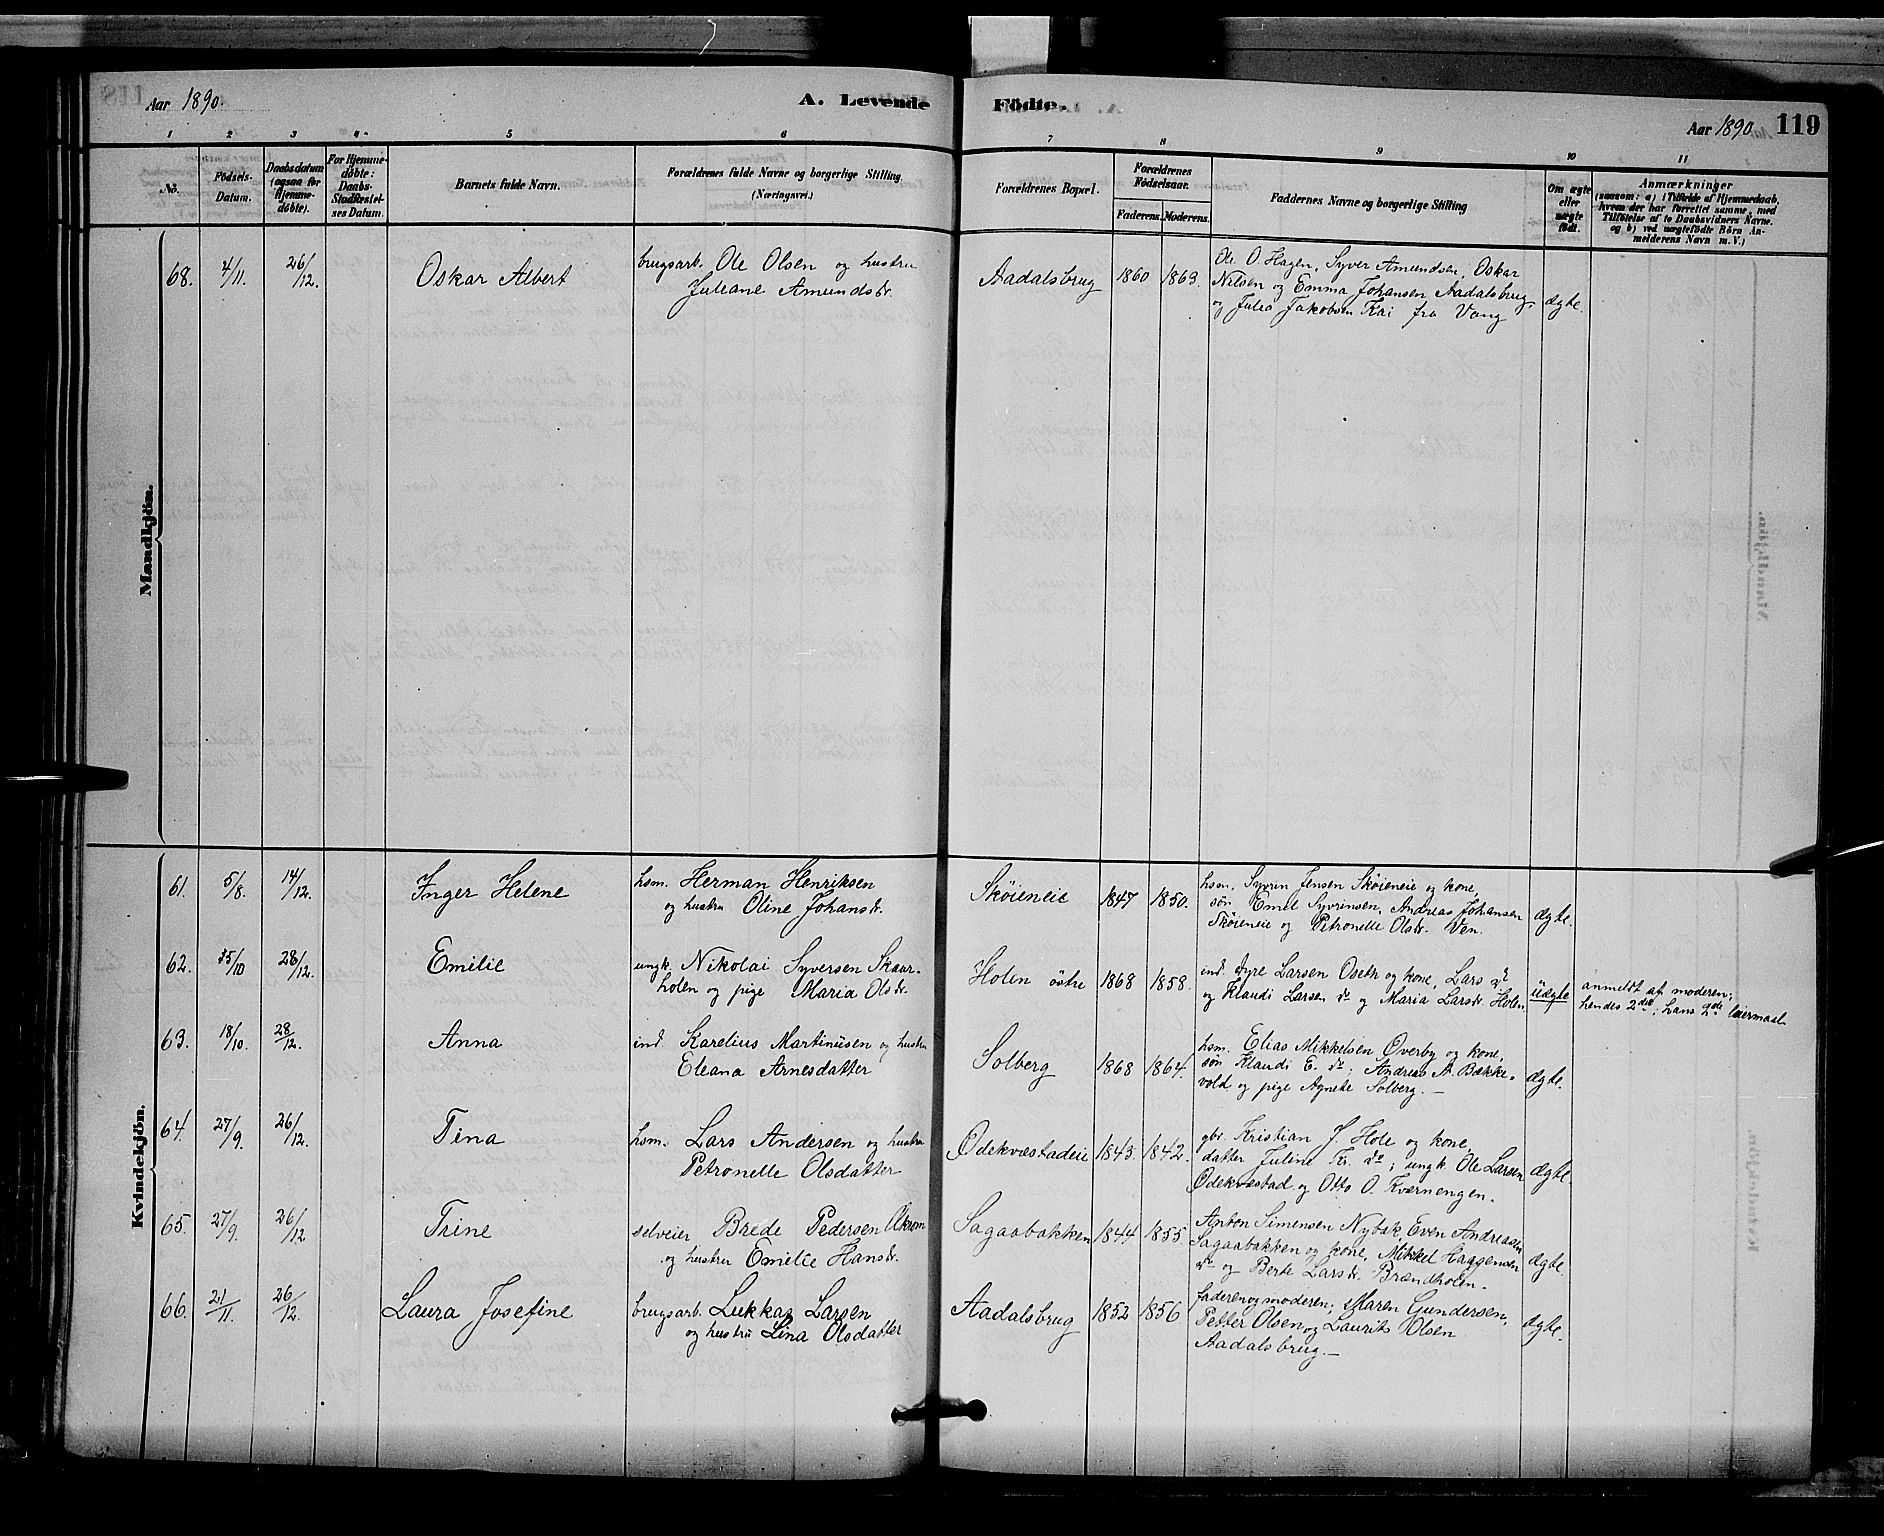 Aar 1890.
A. Levende
Födte.
Aar 1890
119
1 2 3 4 5 6 7 8 9 10 11
No.
Födsels-Datum.
Daabsdatum (ogsaa for Hjemme-döbte).
For Hjemme-döbte: Daabs-Stadfæstel-ses Datum.
Barnets fulde Navn.
Forældrenes fulde Navne og borgerlige Stilling. (Næringsvei.)
Forældrenes Bopæl.
Forældrenes Födselsaar.
Faderens. Moderens.
Faddernes Navne og borgerlige Stilling
Om ægte eller uægte födt.
Anmærkninger
(saasom: a) i Tilfælde af Hjemmedaab,
hvem der har forrettet samme, med
Tilföielse af to Daabsvidners Navne.
og b) ved uægtefödte Börn An-
melderens Navn m. V.)
Mandkjön.
68. 4/11. 26/12. Oskar Albert
brugsarb. Ole Olsen og hustru
Juliane Amundsdr.
Aadalsbrug 1860 1863.
Ole O. Hagen, Syver Amundsen, Oskar
Nilsen og Emma Johansen Aadalsbrug
og Julia Jakobsen Kai fra Vang
ægte.
Kvindekjön.
61. 5/8. 14/12. Inger Helene
hsm. Herman Henriksen
og hustru Oline Johansdr.
Skøieneie 1847 1850.
hsm. Syvrin Jensen Skøieneie og kone,
søn Emil Syvrinsen, Andreas Johansen
Skøieneie og Petronelle Olsdr. Ven.
ægte.
62. 15/10 28/12. Emilie
ungk. Nikolai Syversen Skaar-
holen og pige Maria Olsdr.
Holen östre 1868 1858.
ind. Syre Larsen Oseth og kone, Lars do
og Klaudi Larsen do og Maria Larsdr. Holen
uægte
anmeldt af moderen;
hendes 2det; hans 2det leiermaal.
63. 18/10. 28/12. Anna
ind. Karelius Martinusen og hustru
Eleana Arnesdatter
Solberg 1868 1864.
hsm. Elias Mikkelsen Overby og kone,
søn Klaudi E. do; Andreas A. Bække-
vold og pige Agnete Solberg. —
ægte.
64. 27/9. 26/12. Tina
hsm. Lars Andersen og hustru
Petronelle Olsdatter
Ödekvæstadeie 1843. 1842.
gbr. Kristian J. Hole og kone,
datter Juline Kr. do; ungk. Ole Larsen
Ödekvæstad og Otto O. Kværnengen.
ægte.
65. 27/9. 26/12 Trine
selveier Brede Pedersen
og hustru Emelie Hansdr.
Sagaabakken 1844 1855.
Anton Simensen Nybak, Even Andreasen
Sagaabakken og kone, Mikkel Haagensen
do og Berte Larsdr. Brændholen.
ægte.
66. 21/11. 26/12. Laura Josefine
brugsarb. Lukkas Larsen
og hustru Lina Olsdatter
Aadalsbrug 1852 1856
faderen og moderen; Maren Gundersen,
Petter Olsen og Laurits Olsen
Aadalsbrug. —
ægte.